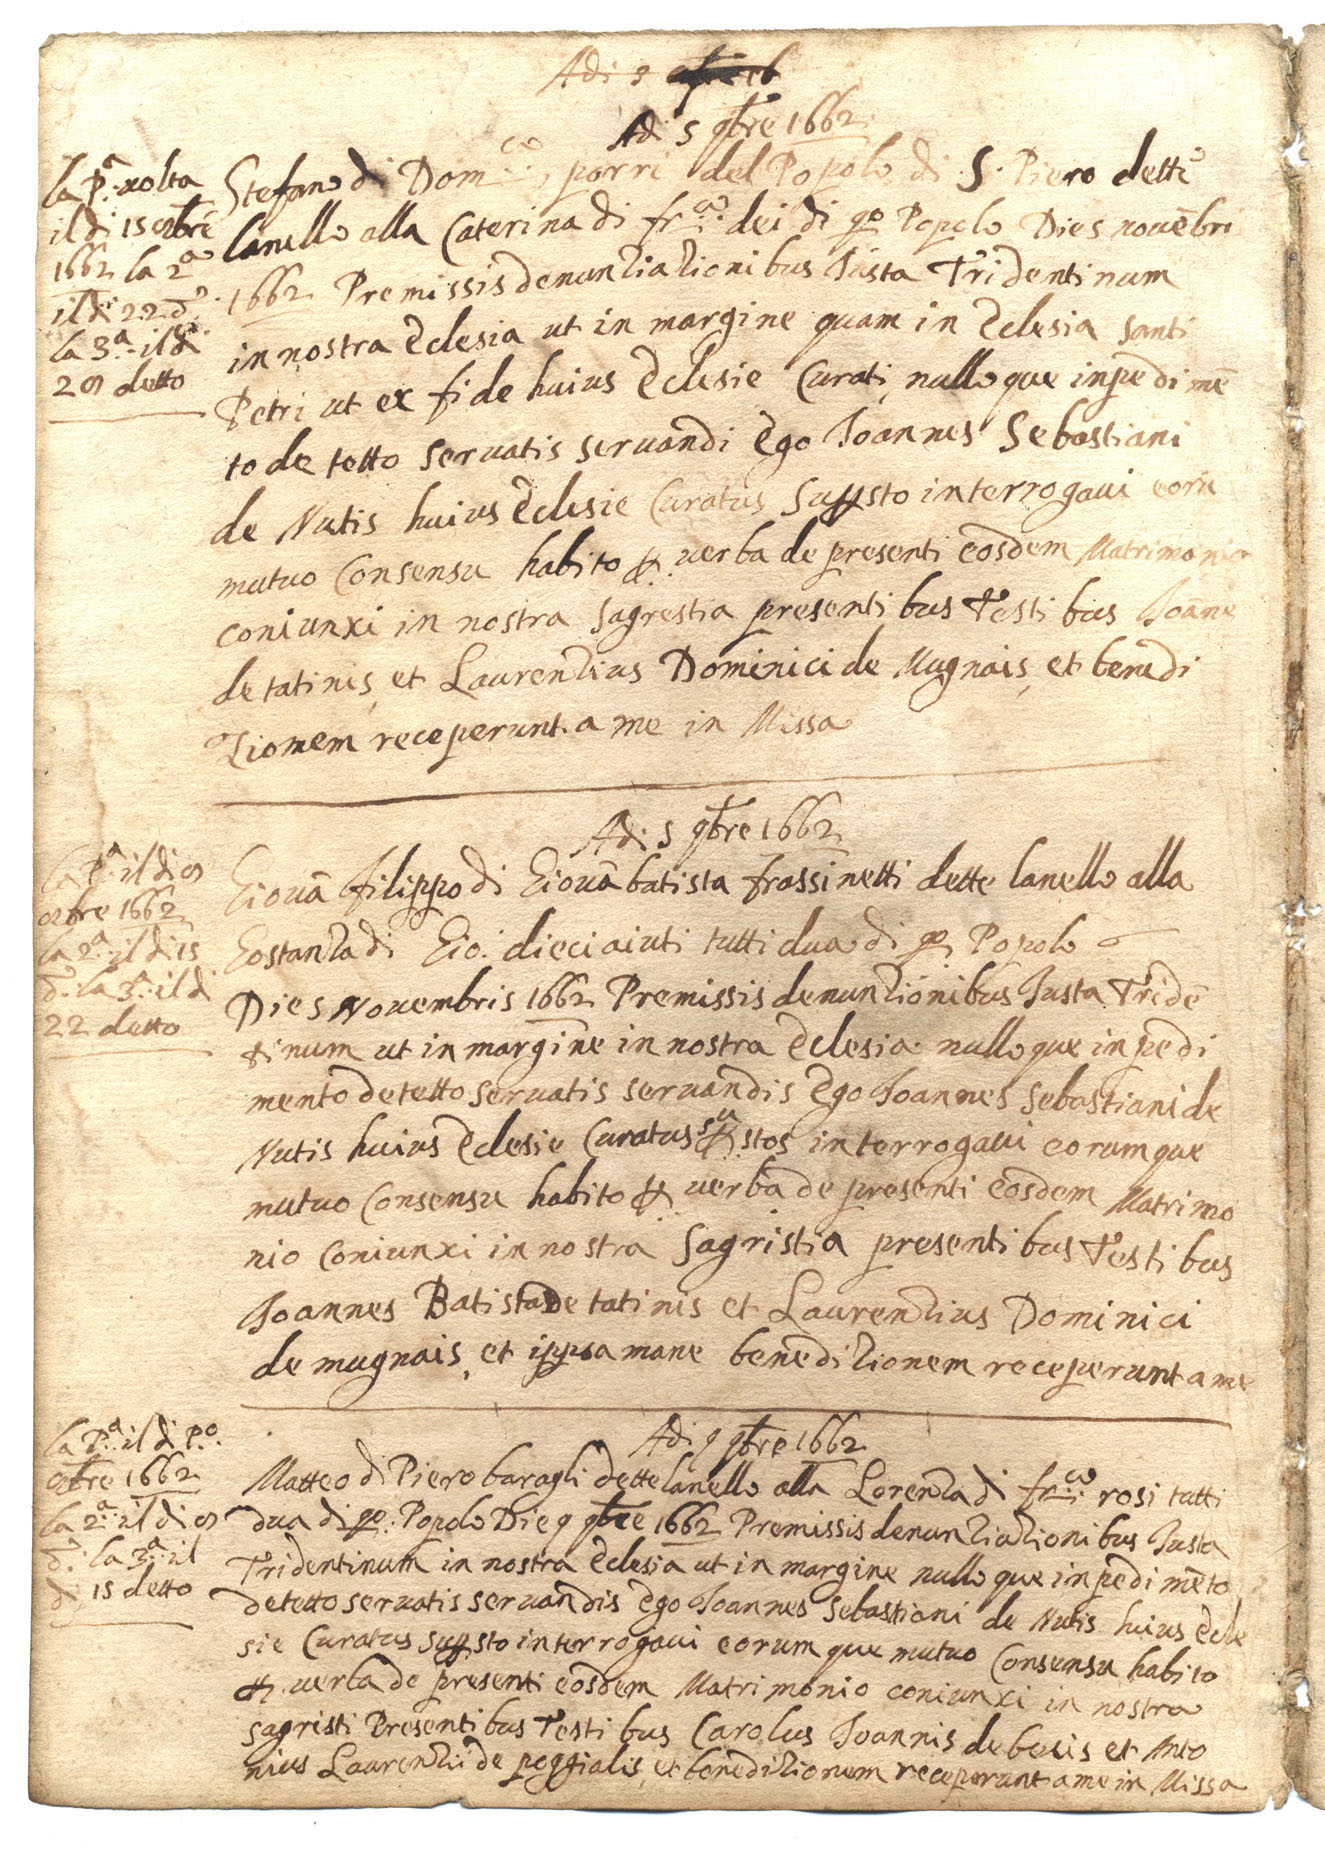 Adi 3
Adi 5 9bre 1662
la Pa. uolta
il di 15 otbre
1662 la 2a
il di 22 do.
la 3a. il di
29 detto
Stefano di Domco porri del Popolo di S. Piero dette
lanello alla Caterina di frca. dei di qo Popolo Dies nouēbri
1662 Premissis denuntiationibus Iusta Tridentinum
in nostra Eclesia ut in margine quam in Eclesia santi
Petri ut ex fide huius Eclesie Curati, nulloque inpedimē
to detetto seruatis seruandi Ego Ioannes Sebastiani
de Nutis huius Eclesie Curatus interrogaui eorū
mutuo Consensu habito p. uerba de presenti eosdem Matrimonio
coniunxi in nostra sagrestia presentibus Testibus Ioāne
de tatinis, et Laurentius Dominici de Mugnais, et benedi
tionem receperunt a me in Missa
Adi 5 9bre 1662
la Pa. il di 9
otbre 1662
la 2a. il di 15
do. la 3a. il di
22 detto
Giouā filippo di Giouābatista frassinetti dette lanello alla
Gostanza di Gio. dieciaiuti tutti dua di qo Popolo
Dies Nouembris 1662 Premissis denuntionibus Iusta Tridē
tinum ut in margine in nostra Eclesia nulloque inpedi
mento detetto seruatis seruandis Ego Ioannes Sebastiani de
Nutis huius Eclesie Curatus interrogaui eorumque
mutuo Consensu habito p. uerba de presenti eosdem Matrimo
nio coniunxi in nostra sagristia presentibus Testibus
Ioannes Batista De tatinis et Laurentius Dominici
de mugnais, et ippsa mane beneditionem receperunt a me
la Pa. il di Po.
otbre 1662
la 2a. il di 9
do. la 3a. il
di 15 detto
Adi 9 9bre 1662
Matteo di Piero baragli dette lanello alla Lorenza di frca. rosi tutti
dua di qo. Popolo Die 9 9bre 1662 Premissis denuntiationibus Iusta
Tridentinum in nostra Eclesia ut in margine nulloque inpedimēto
detetto seruatis seruandis Ego Ioannes Sebastiani de Nutis huius Ecle
sie Curatus interrogaui eorumque mutuo Consensu habito
p. uerba de presenti eosdem Matrimonio coniunxi in nostra
sagristi Presentibus Testibus Carolus Ioannis de et Anto
nius Laurentii de poggialis, et beneditionem receperunt a me in Missa